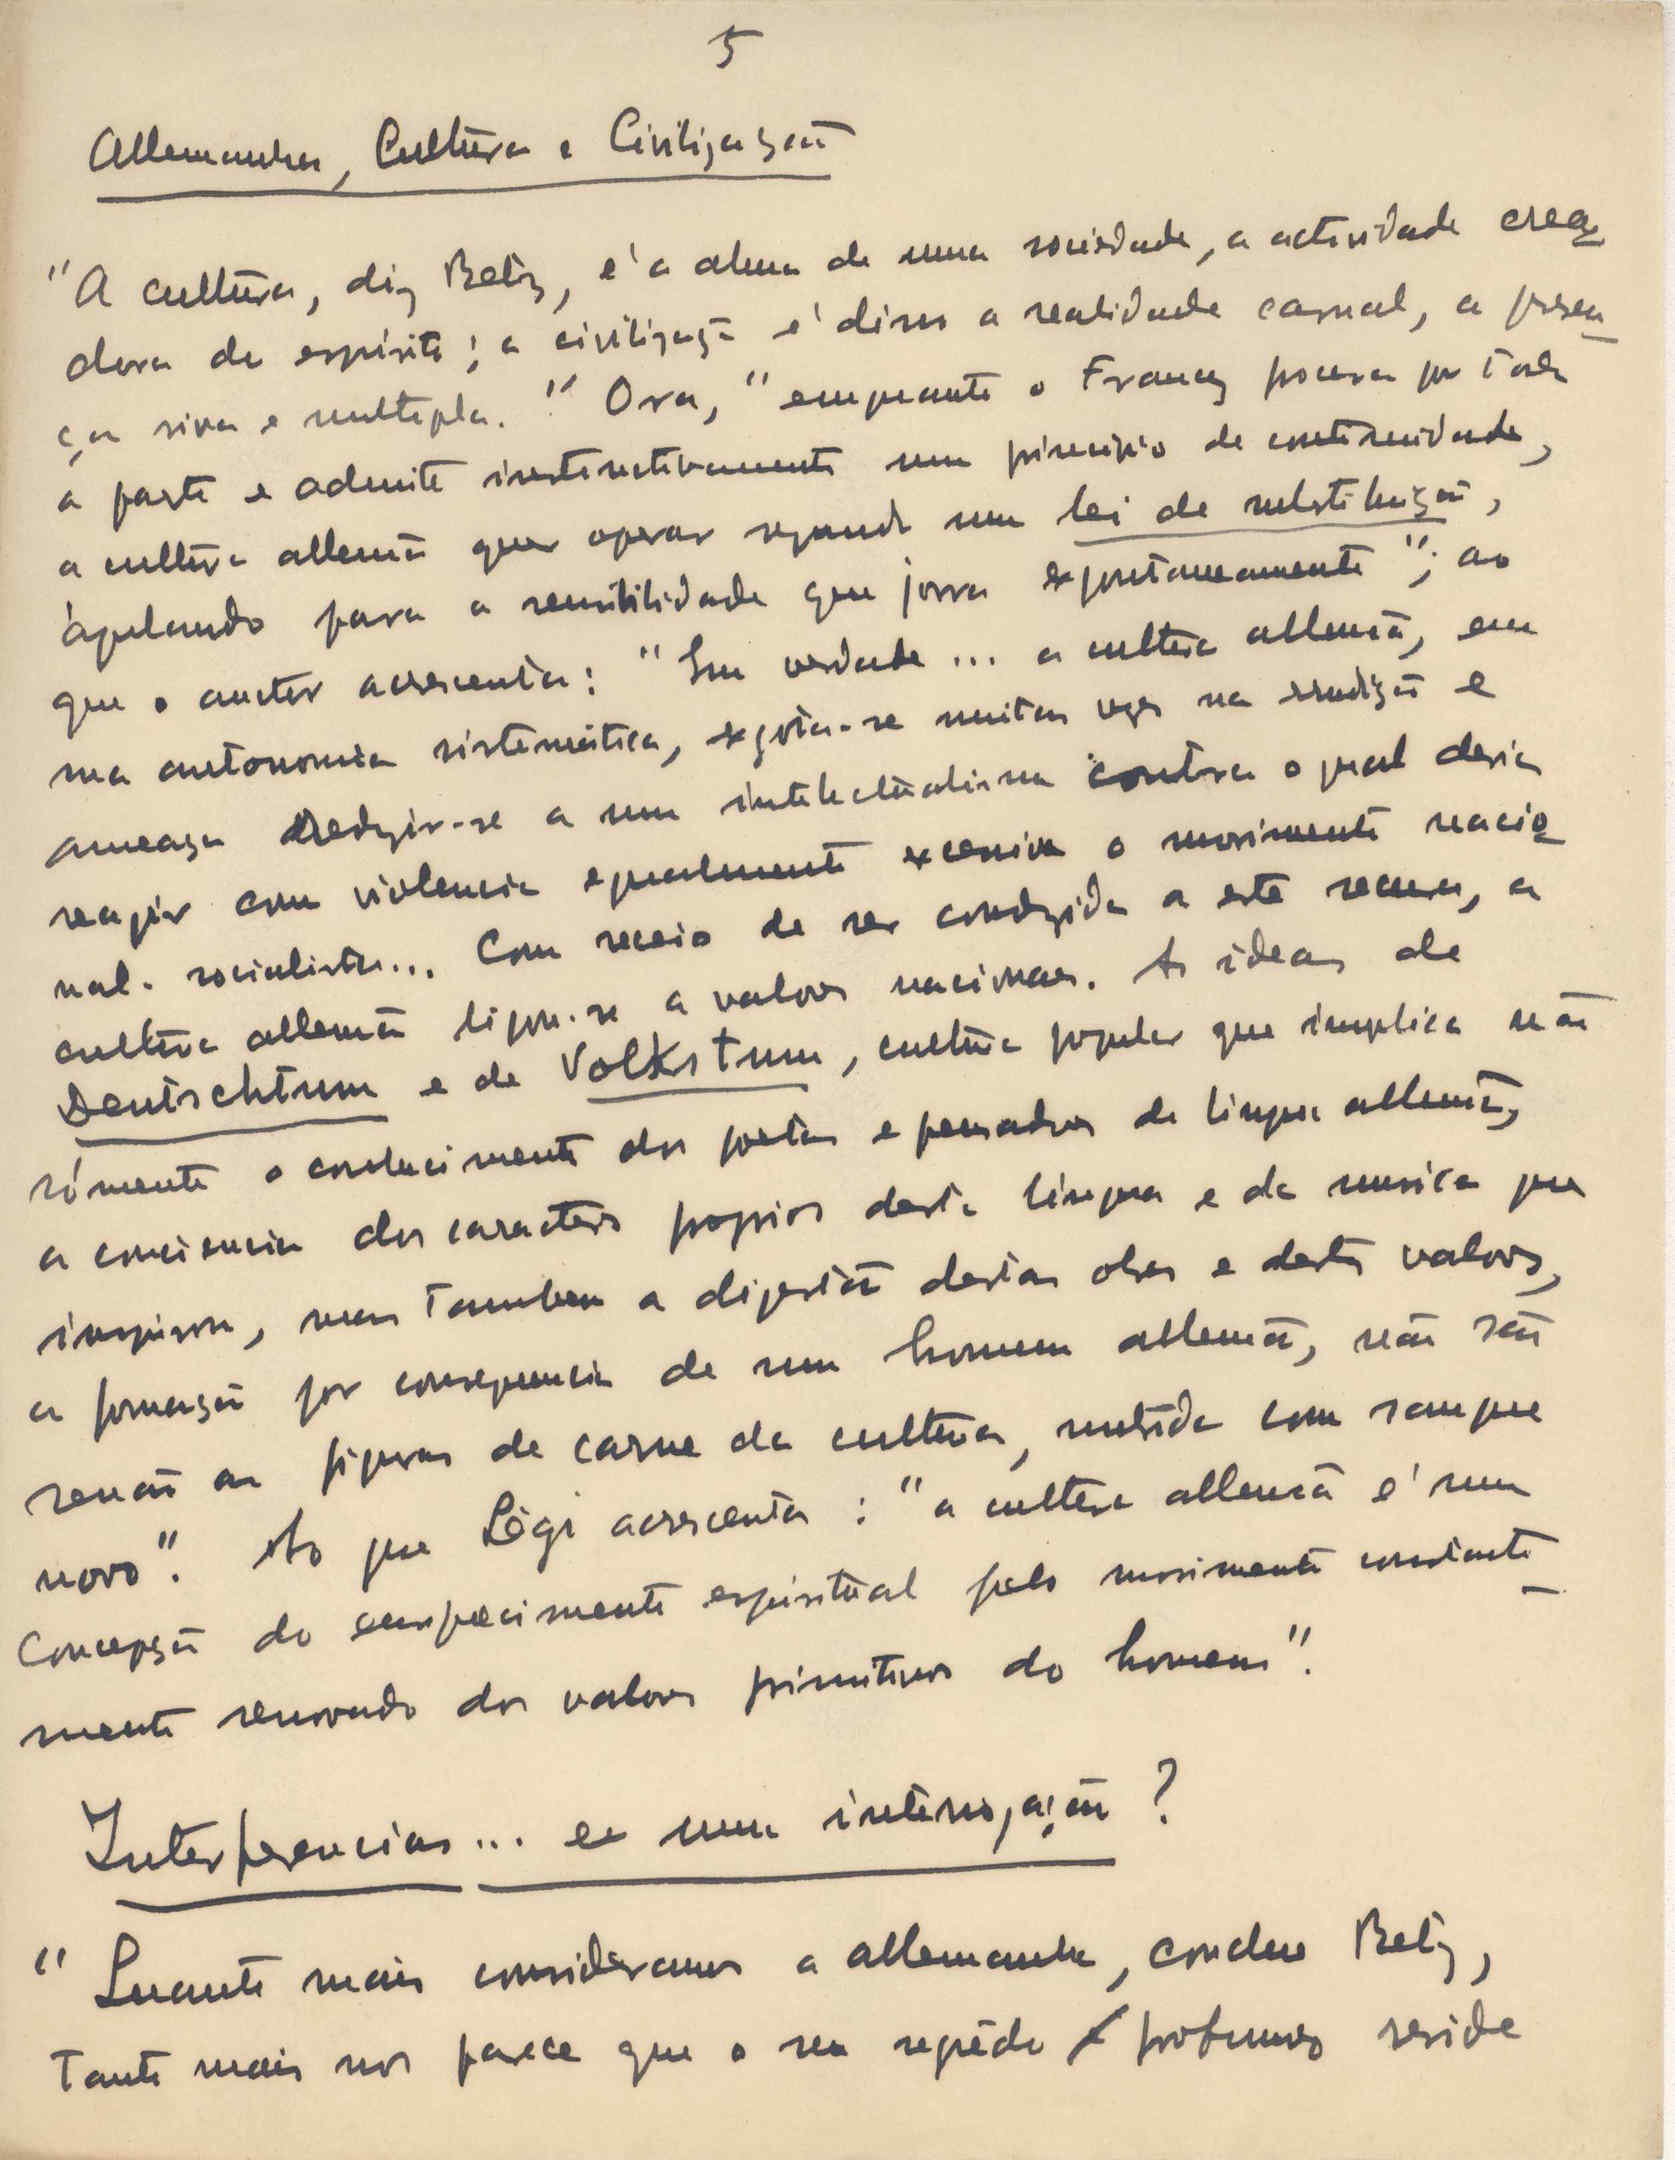 5
Allemanha, Cultura e Civilização
"A cultura, diz Betz, é a alma de uma sociedade, a actividade crea
dora do espirito; a civilização é disso a realidade carnal, a presen
ça viva e multipla." Ora, "emquanto o Francez procura por toda
a parte e admite instinctivamente um principio de continuidade,
a cultura allemã quer operar segundo uma lei de substituição,
apelando para a sensibilidade que jorra espontaneamente"; ao
que o auctor acrescenta: "Em verdade... a cultura allemã, em
sua autonomia sistemática, esgota-se muitas vezes na erudição e
ameaça reduzir-se a um intelectualismo contra o qual devia
reagir com violencia egualmente excessiva o movimento nacio
nal-socialista... Com receio de ser conduzida a este recurso, a
cultura allemã ligou-se a valores nacionaes. As ideas de
Deutschtum e de Volkstum, cultura popular que implica não
sómente o conhecimento dos poetas e pensadores de lingua allemã,
a consciencia dos caracteres proprios desta lingua e da musica que
inspirou, mas tambem a digestão destas obras e destes valores,
a formação por consequencia de um homem allemão, não são
senão as figuras de carne da cultura, nutrida com sangue
novo". Ao que acrescenta: "a cultura allemã é uma
Concepção do enriquecimento espiritual pelo movimento constante
mente renovado dos valores primitivos do homem".
Interferencias... e uma interrogação?
"Quanto mais consideramos a Allemanha, conclue Betz,
Tanto mais nos parece que o seu segrêdo profundo reside